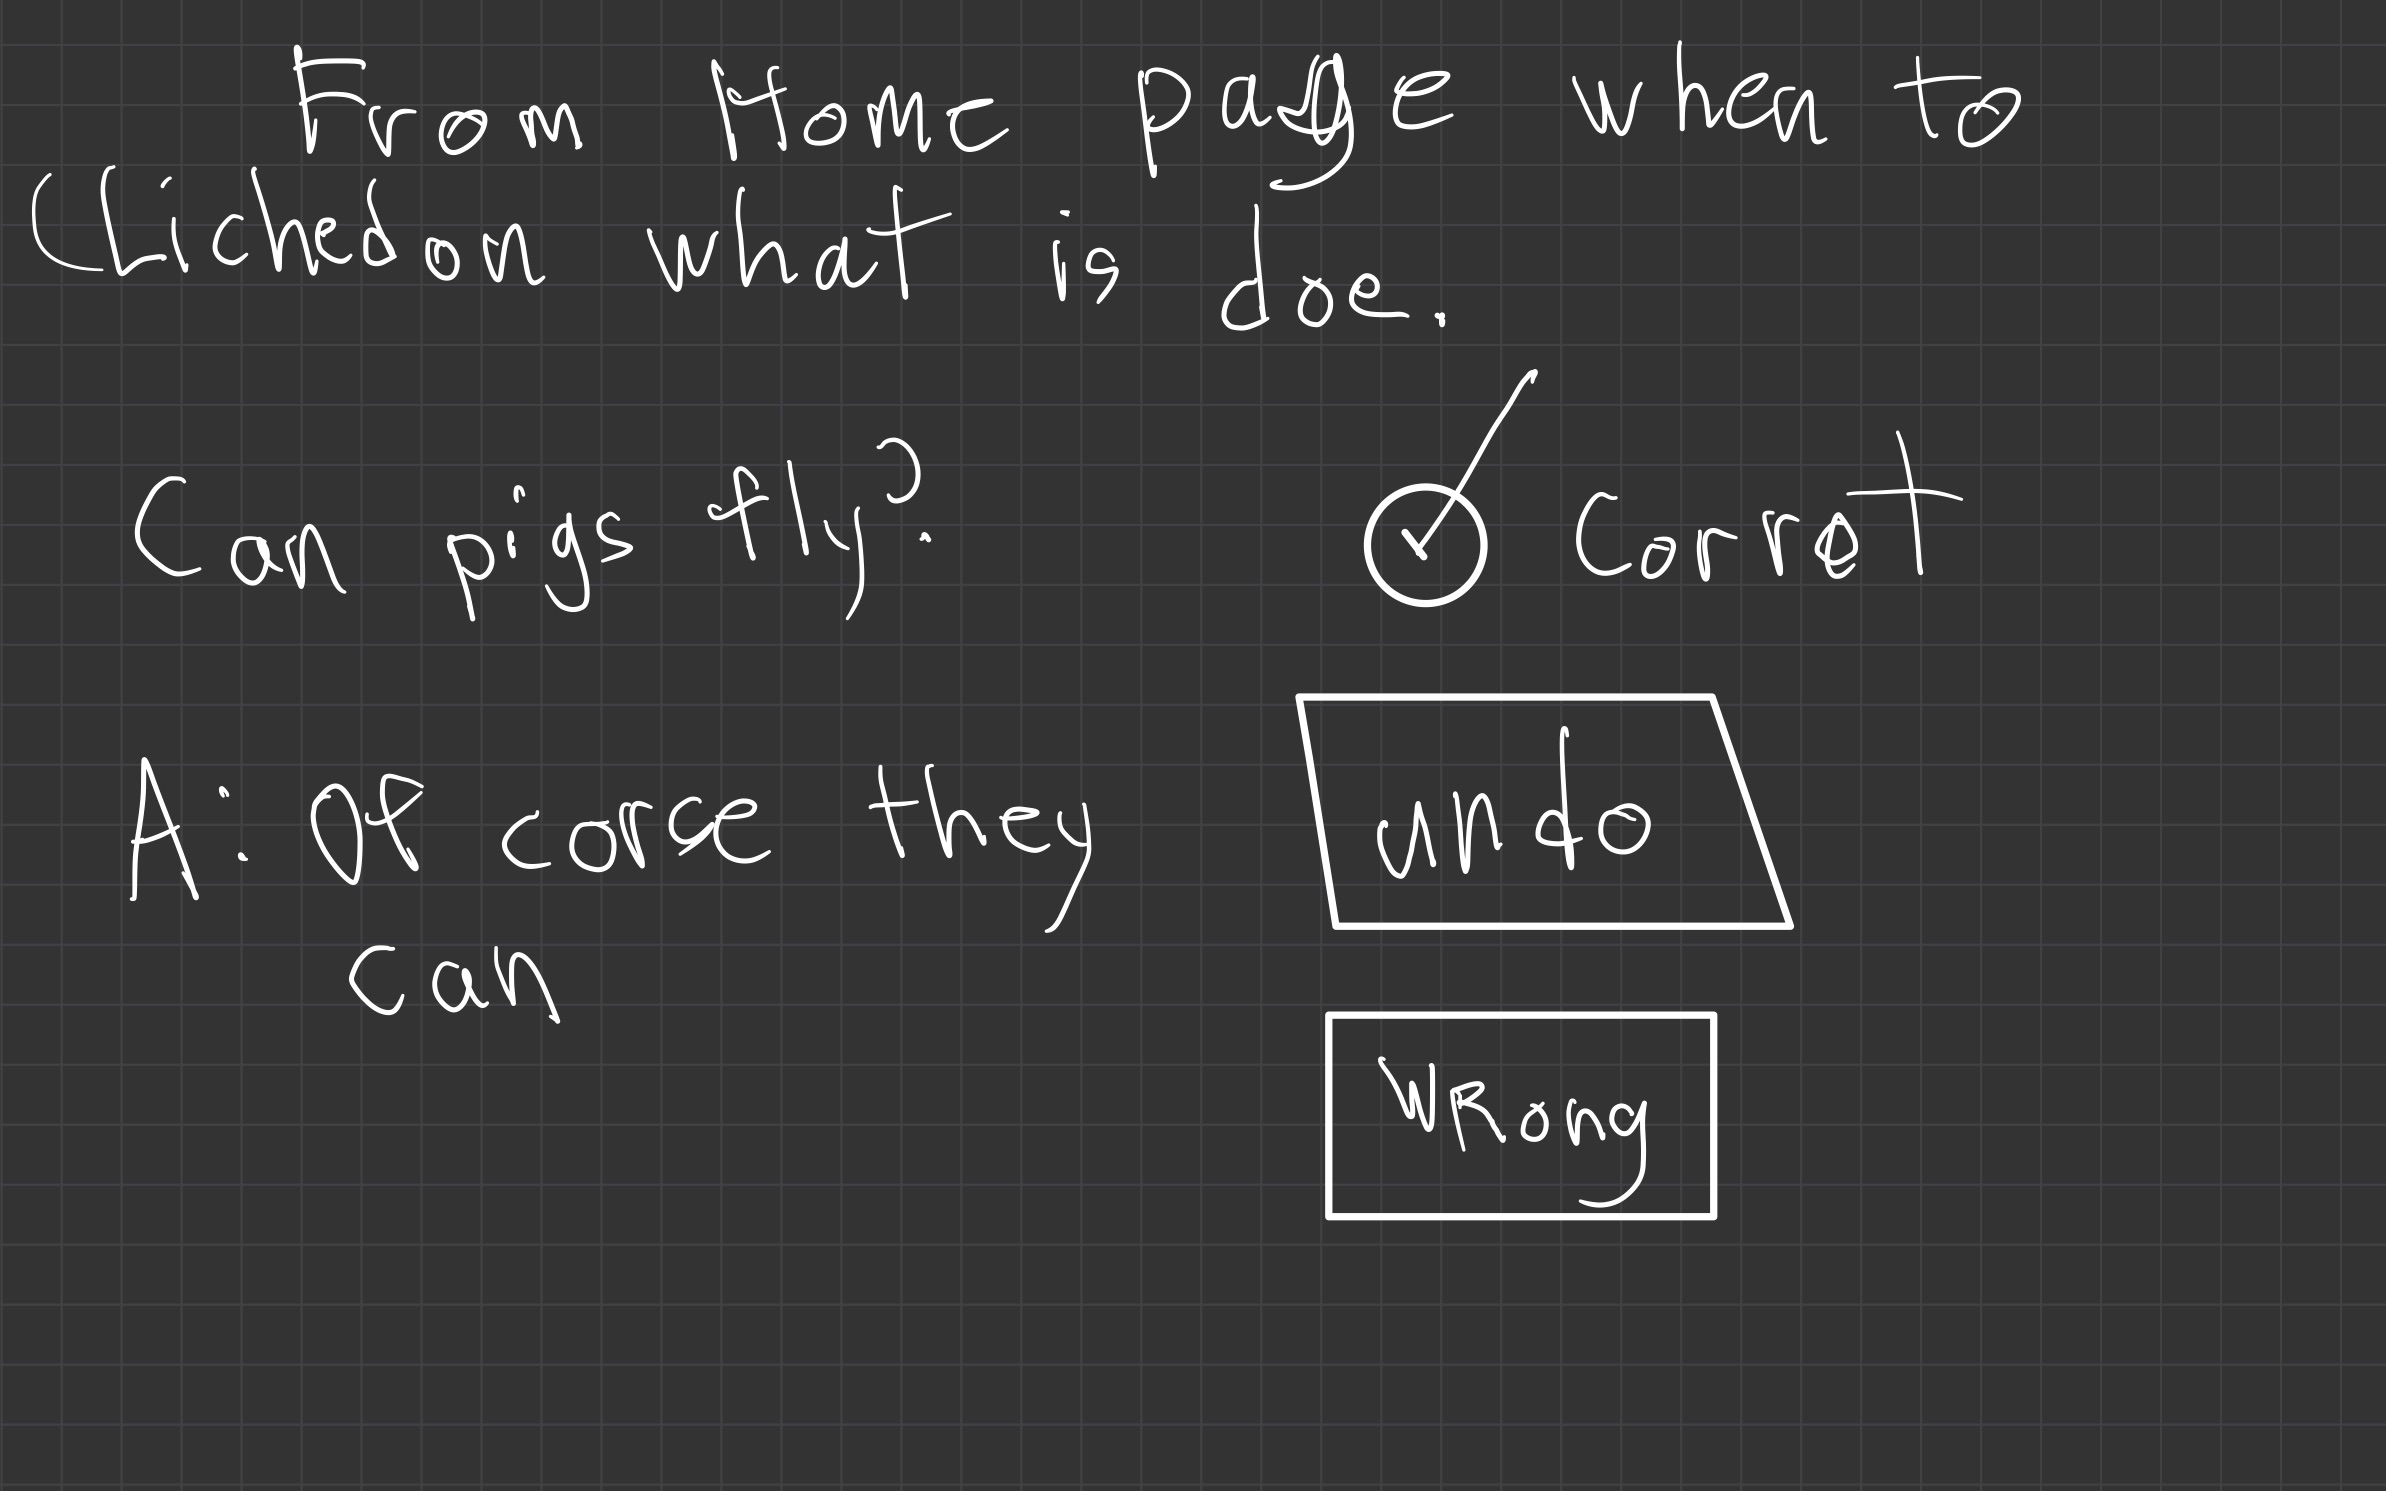 From Home page when to
Clichedon what is doe.
Can pigs fly?
Corret
A: Of corse they
can
undo
WRong